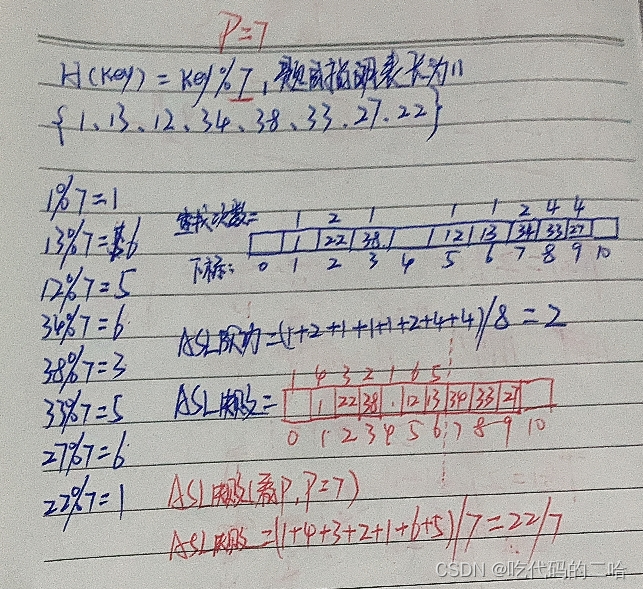 P=7
H(Key) = Key%7, 题目指明表长为11
{1、13、12、34、38、33、27、22}
1%7=1
13%7=6
12%7=5
34%7=6
38%7=3
33%7=5
27%7=6
22%7=1
查找次数= 1 2 1 1 1 2 4 4
1 22 38 12 13 34 33 27
下标: 0 1 2 3 4 5 6 7 8 9 10
ASL成功=(1+2+1+1+1+2+4+4)/8=2
1 4 3 2 1 6 5
ASL失败= 1 22 38 12 13 34 33 27
0 1 2 3 4 5 6 7 8 9 10
ASL失败(看P, P=7)
ASL失败=(1+4+3+2+1+6+5)/7=22/7
CSDN @吃代码的二哈